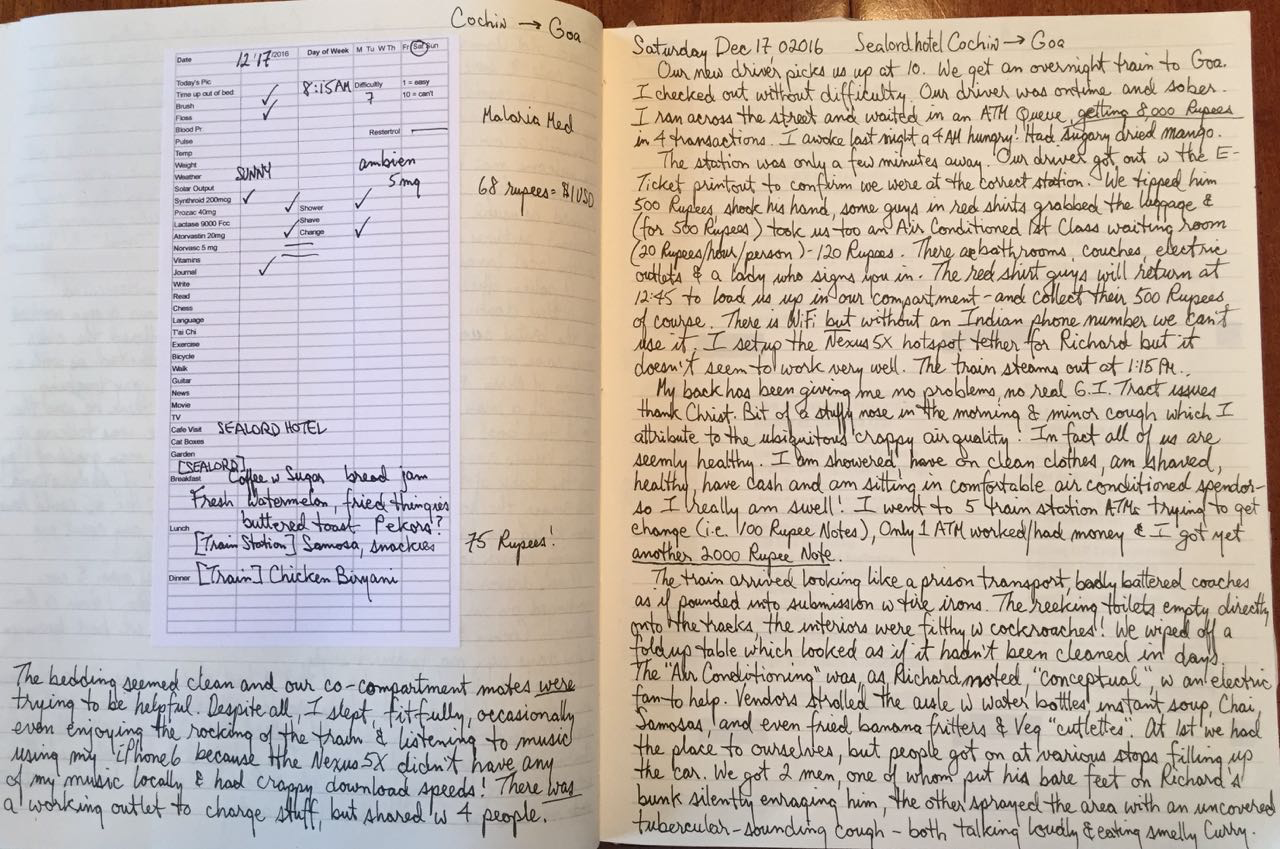 Cochin → Goa
Date 12/17/2016 Day of Week M Tu W Th Fr Sat Sun
Today's Pic
Time up out of bed ✓ 8:15AM Difficulty 1 = easy
Brush ✓ 7 10 = can't
Floss ✓
Blood Pr.
Pulse Restertrol
Temp
Weight ambien
Weather SUNNY 5mg
Solar Output
Synthroid 200mcg ✓
Prozac 40mg ✓ Shower ✓
Lactase 9000 Fcc Shave
Atorvastin 20mg ✓ Change ✓
Norvasc 5 mg
Vitamins
Journal ✓
Write
Read
Chess
Language
T'ai Chi
Exercise
Bicycle
Walk
Guitar
News
Movie
TV
Cafe Visit SEALORD HOTEL
Cat Boxes
Garden
[SEALORD]
Breakfast Coffee w Sugar bread jam
Fresh Watermelon, fried thingies
buttered toast Pekors!?
Lunch
[Train Station] Samosa, snackies
Dinner [Train] Chicken Biryani
Malaria Med
68 rupees = $1USD
75 Rupees!
The bedding seemed clean and our co-compartment mates were
trying to be helpful. Despite all, I slept, fitfully, occasionally
even enjoying the rocking of the train & listening to music
using my iPhone6 because the Nexus 5X didn't have any
of my music locally & had crappy download speeds! There was
a working outlet to charge stuff, but shared w 4 people.
Saturday Dec 17, 02016 Sealord hotel Cochin → Goa
Our new driver picks us up at 10. We get an overnight train to Goa.
I checked out without difficulty. Our driver was ontime and sober.
I ran across the street and waited in an ATM Queue, getting 8,000 Rupees
in 4 transactions. I awoke last night a 4AM hungry! Had sugary dried mango.
The station was only a few minutes away. Our driver got out w the E-
Ticket printout to confirm we were at the correct station. We tipped him
500 Rupees, shook his hand, some guys in red shirts grabbed the luggage &
(for 500 Rupees) took us too an Air Conditioned 1st Class waiting room
(20 Rupees/hour/person) - 120 Rupees. There are bathrooms, couches, electric
outlets & a lady who signs you in. The red shirt guys will return at
12:45 to load us up in our compartment - and collect their 500 Rupees
of course. There is WiFi but without an Indian phone number we can't
use it. I set up the Nexus 5X hotspot tether for Richard but it
doesn't seem to work very well. The train steams out at 1:15 PM.
My back has been giving me no problems, no real G.I. Tract issues
thank Christ. Bit of a stuffy nose in the morning & minor cough which I
attribute to the ubiquitous crappy air quality! In fact all of us are
seemly healthy. I am showered, have on clean clothes, am shaved,
healthy, have cash and am sitting in comfortable air conditioned spendor -
so I really am swell! I went to 5 train station ATMs trying to get
change (i.e. 100 Rupee Notes), Only 1 ATM worked/had money & I got yet
another 2000 Rupee Note.
The train arrived looking like a prison transport, badly battered coaches
as if pounded into submission w tire irons. The reeking toilets empty directly
onto the tracks, the interiors were filthy w cockroaches! We wiped off a
foldup table which looked as if it hadn't been cleaned in days.
The "Air Conditioning" was, as Richard noted, "conceptual", w an electric
fan to help. Vendors strolled the aisle w water bottles, instant soup, Chai,
Samosas, and even fried banana fritters & Veg "cutlettes". At 1st we had
the place to ourselves, but people got on at various stops filling up
the car. We got 2 men, one of whom put his bare feet on Richard's
bunk silently enraging him, the other sprayed the area with an uncovered
tubercular-sounding cough - both talking loudly & eating smelly Curry.